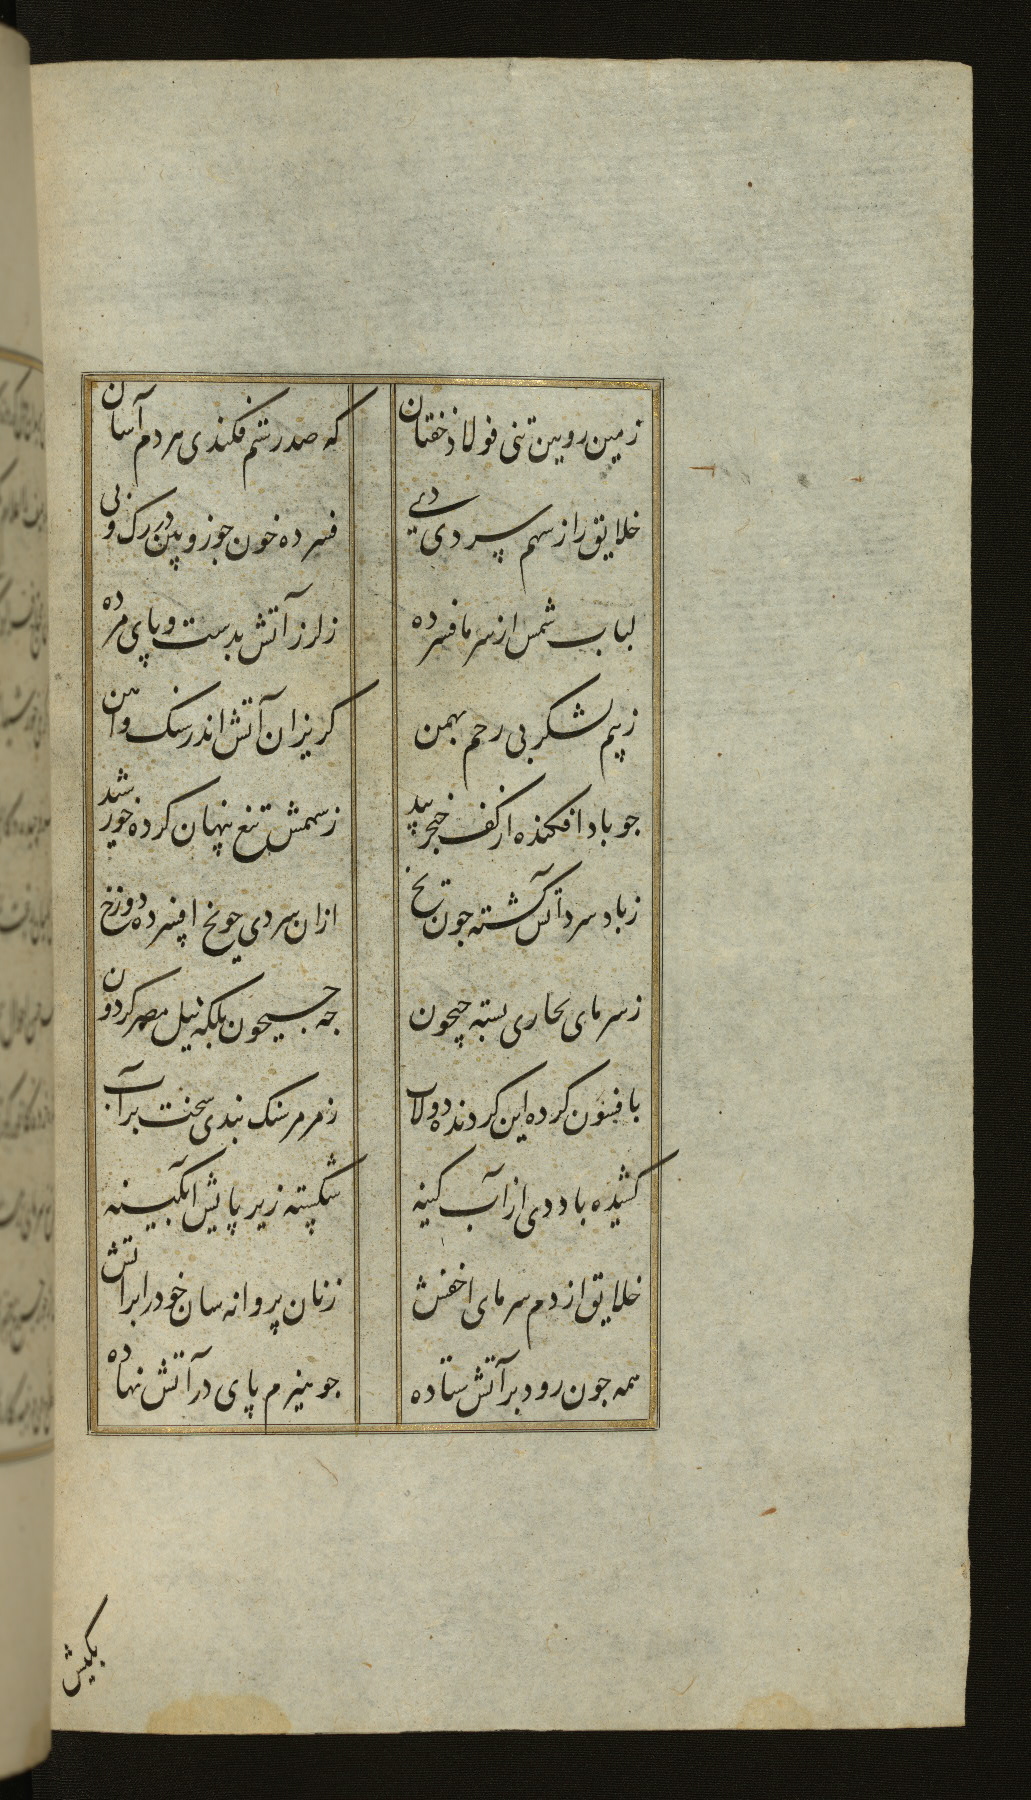 زمین رویین تنی فولاد خفتان که صد رستم فکندی هر دم آسان
خلایق را ز سهم سردی دی فسرده خون جوز و پین در رک و پی
لباب شمس از سرما فسرده ز لرز آتش بدست و پای مرده
ز بیم لشکر بی رحم بهمن کریزان آتش اندر سنک و آهن
جو باد افکنده از کف خنجر بید ز سهمش تیغ پنهان کرده خورشید
ز باد سرد آتش کشته جون یخ ازان سردی جو یخ افسرده دوزخ
ز سرمای بخاری بسته جیحون جه جیحون بلکه نیل مصر کردون
بافسون کرده این کردنده دولاب ز مرمر سنک بندی سخت بر آب
کشیده باد دی از آب کینه شکسته زیر پایش آبکینه
خلایق از دم سرمای اخفش زنان پروانه سان خود را بر آتش
همه جون رود بر آتش ستاده جو هیزم پای در آتش نهاده
بکیش